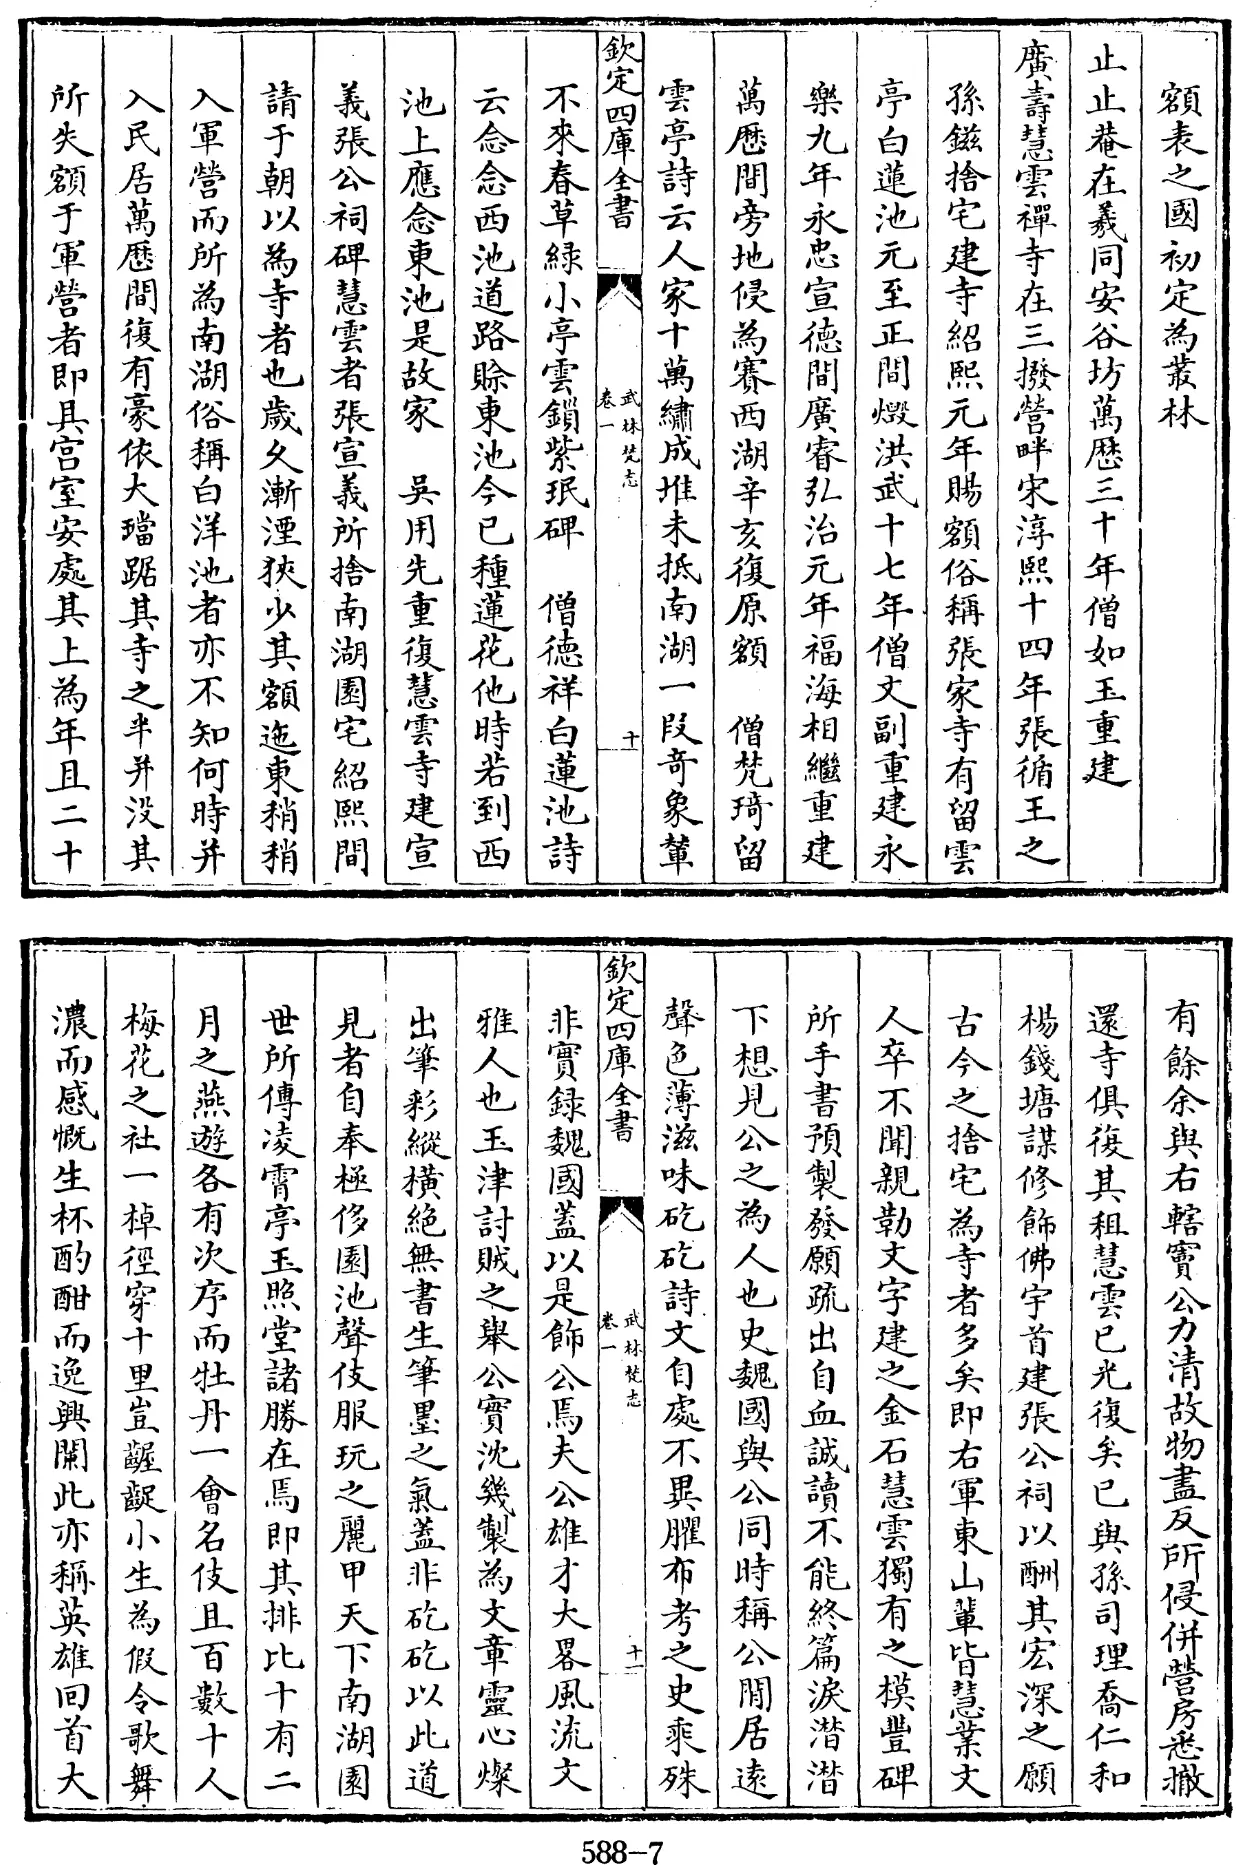 額表之國初定為叢林
止止菴在羲同安谷坊萬歷三十年僧如玉重建
廣壽慧雲禪寺在三撥營畔宋淳熙十四年張循王之
孫鎡捨宅建寺紹熙元年賜額俗稱張家寺有留雲
亭白蓮池元至正間燬洪武十七年僧文副重建永
樂九年永忠宣德間廣睿弘治元年福海相繼重建
萬歷間旁地侵為賽西湖辛亥復原額 僧梵琦留
雲亭詩云人家十萬繡成堆未抵南湖一段奇象輦
欽定四庫全書
武林梵志
卷一
十
不來春草綠小亭雲鎖紫珉碑 僧德祥白蓮池詩
云念念西池道路賒東池今已種蓮花他時若到西
池上應念東池是故家 吳用先重復慧雲寺建宣
義張公祠碑慧雲者張宣義所捨南湖園宅紹熙間
請于朝以為寺者也歲久漸湮狹少其額迤東稍稍
入軍營而所為南湖俗稱白洋池者亦不知何時并
入民居萬歷間復有豪依大璫踞其寺之半并沒其
所失額于軍營者即具宮室安處其上為年且二十
有餘余與右轄竇公力清故物盡反所侵併營房悉撤
還寺俱復其租慧雲已光復矣已與孫司理喬仁和
楊錢塘謀修飾佛宇首建張公祠以酬其宏深之願
古今之捨宅為寺者多矣即右軍東山輩皆慧業文
人卒不聞親勒文字建之金石慧雲獨有之模豐碑
所手書預製發願疏出自血誠讀不能終篇淚潸潸
下想見公之為人也史魏國與公同時稱公閒居遠
聲色薄滋味矻矻詩文自處不異臞布考之史乘殊
欽定四庫全書
武林梵志
卷一
十一
非實錄魏國蓋以是飾公焉夫公雄才大畧風流文
雅人也玉津討賊之舉公實沈幾製為文章靈心燦
出筆彩縱橫絕無書生筆墨之氣蓋非矻矻以此道
見者自奉極侈園池聲伎服玩之麗甲天下南湖園
世所傳凌霄亭玉照堂諸勝在焉即其排比十有二
月之燕遊各有次序而牡丹一會名伎且百數十人
梅花之社一棹徑穿十里豈齷齪小生為假令歌舞
濃而感慨生杯酌酣而逸興闌此亦稱英雄回首大
588-7